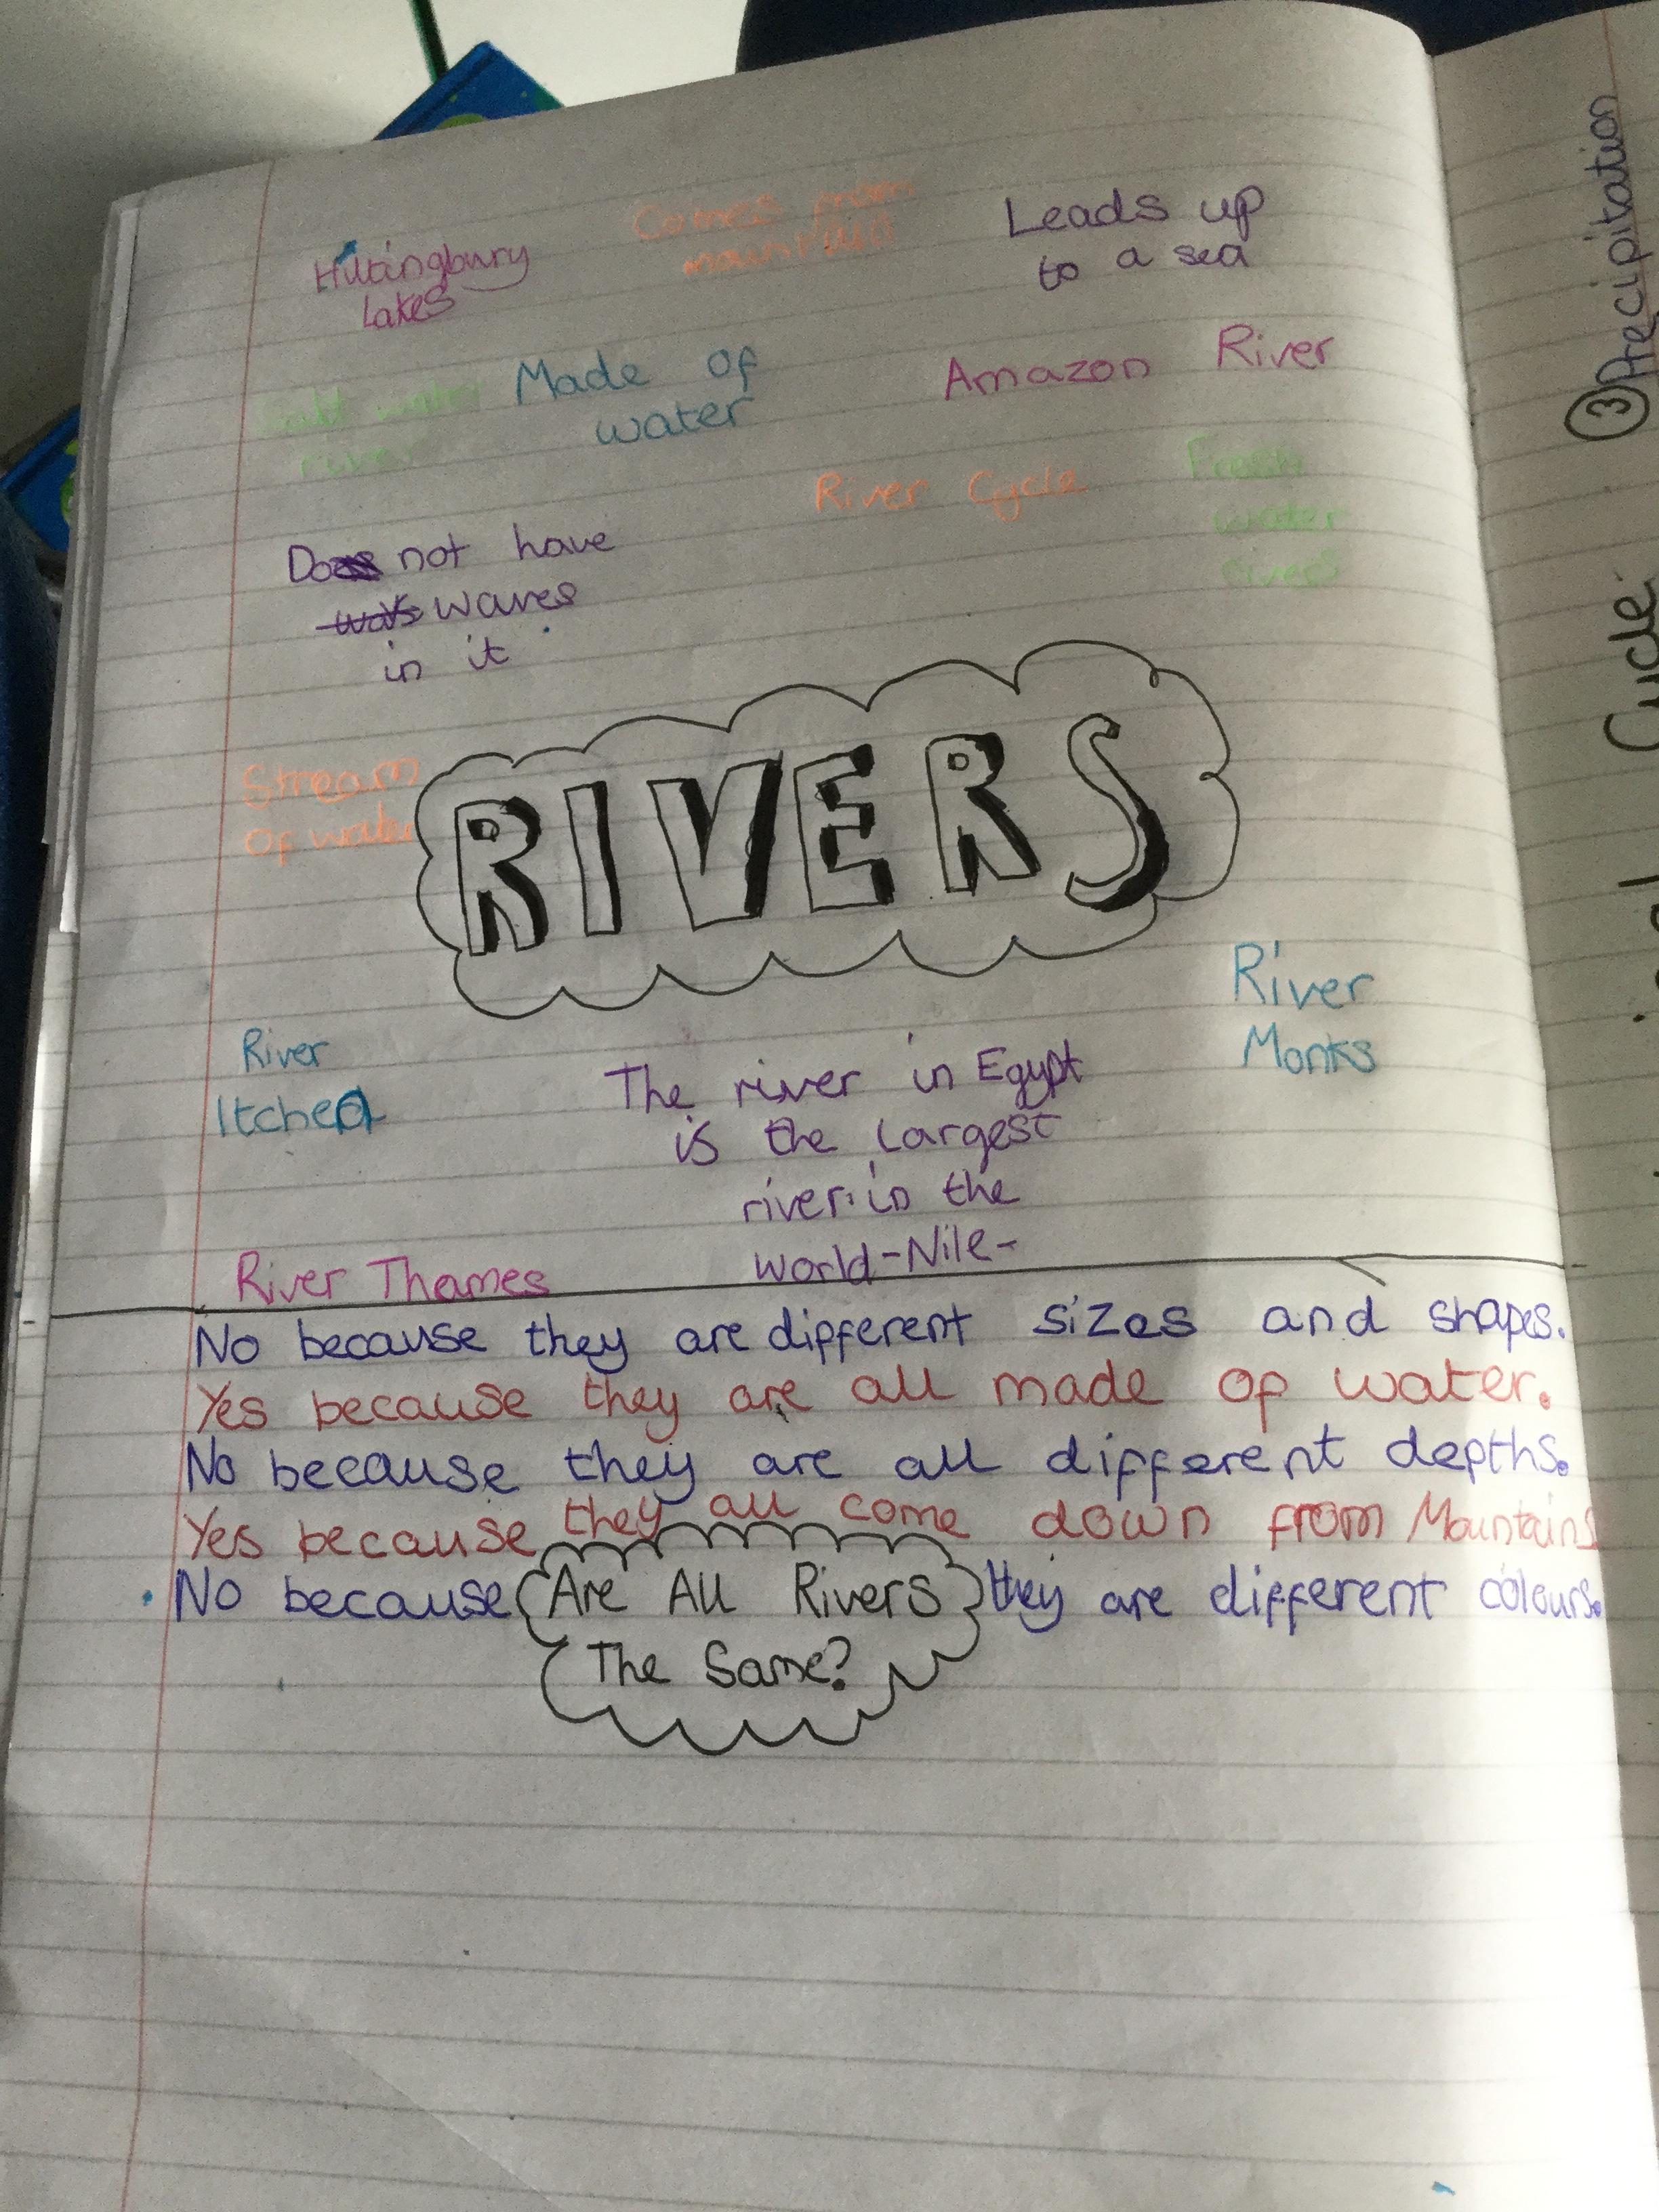 Hiltingbury
Lakes
Comes from
mountain
Leads up
to a sea
Made of
water
Amazon River
Salt water
rivers
River Cycle
Fresh
water
rivers
Do not have
waves
in it
Stream
of water
RIVERS
River
Itchen
The river in Egypt
is the largest
river in the
world-Nile-
River
Monks
River Thames
No because they are different sizes and shapes.
Yes because they are all made of water.
No because they are all different depths.
Yes because they all come down from Mountains
No because they are different colours.
Are All Rivers
The Same?
③Precipitation
Cycle